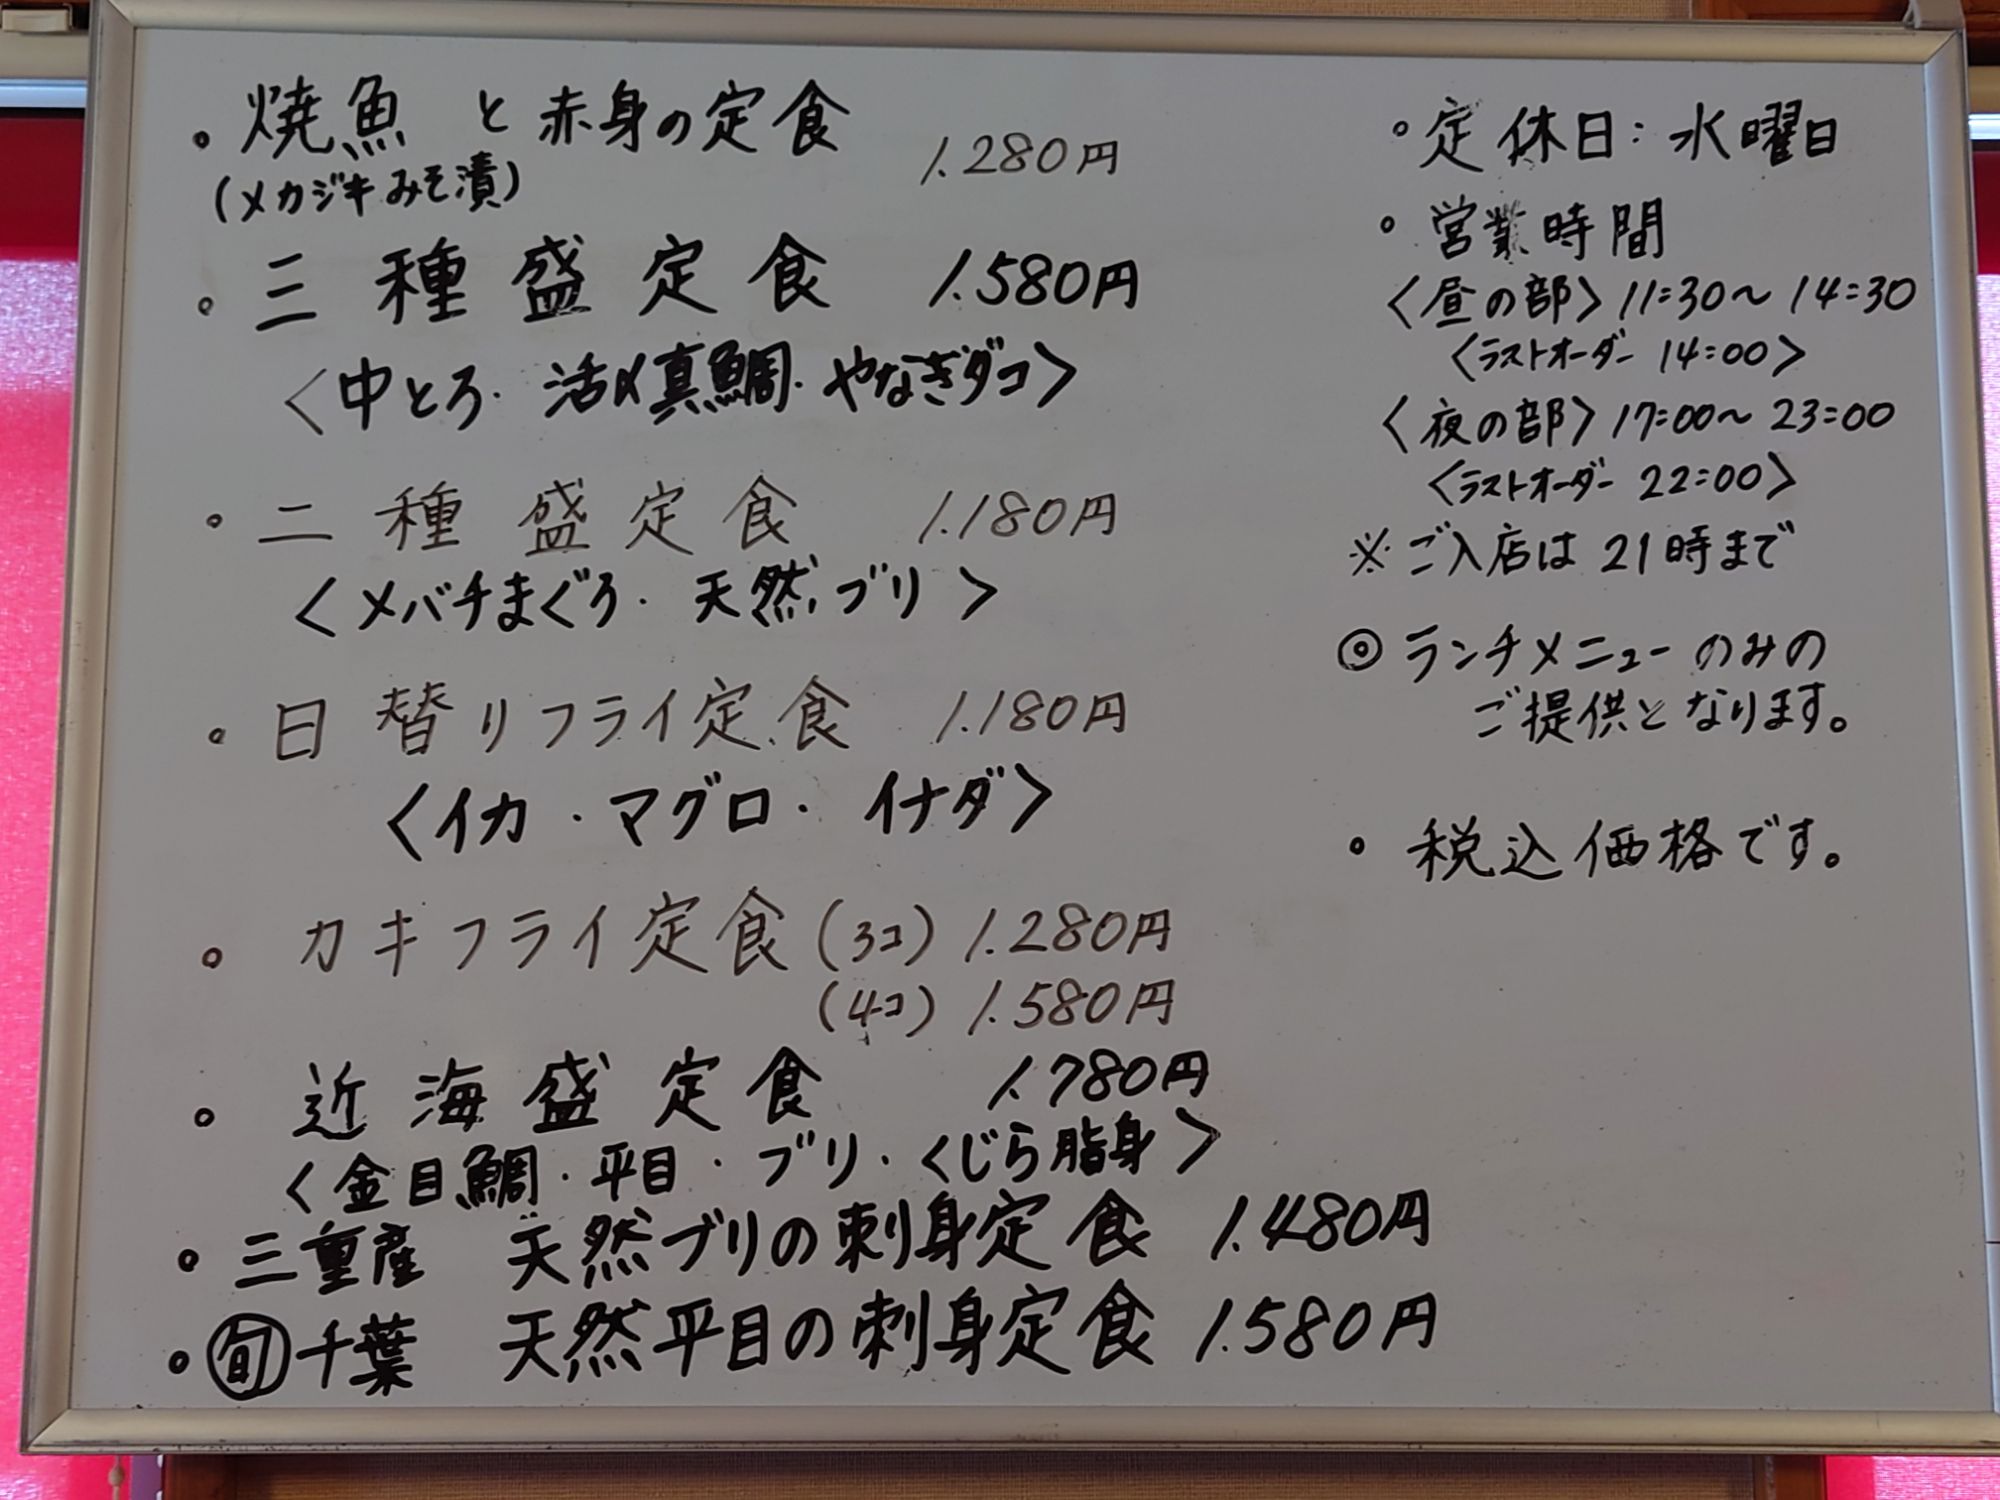 。焼魚 と赤身の定食 1.280円
(メカジキみそ漬)
。三種盛定食 1.580円
〈中とろ・活〆真鯛・やなぎダコ〉
。二種盛定食 1.180円
〈メバチまぐろ・天然ブリ〉
。日替りフライ定食 1.180円
〈イカ・マグロ・イナダ〉
。カキフライ定食(3コ) 1.280円
(4コ) 1.580円
。近海盛定食 1.780円
〈金目鯛・平目・ブリ・くじら脂身〉
。三重産 天然ブリの刺身定食 1.480円
。㊬千葉 天然平目の刺身定食 1.580円
。定休日:水曜日
。営業時間
〈昼の部〉11:30〜14:30
〈ラストオーダー 14:00〉
〈夜の部〉17:00〜23:00
〈ラストオーダー 22:00〉
※ご入店は21時まで
◎ランチメニューのみの
ご提供となります。
。税込価格です。